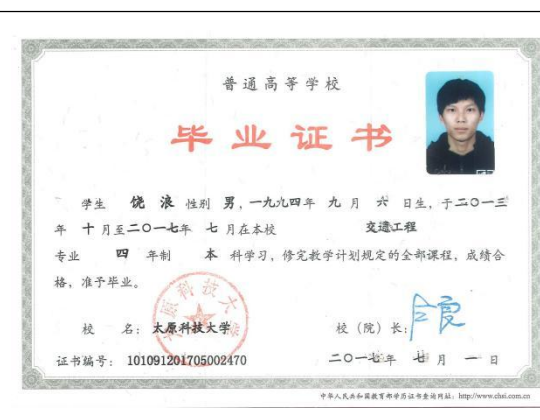 普通高等学校
毕业证书
学生 饶浪 性别 男，一九九四年 九 月 六 日生，于二〇一三
年 十 月至二〇一七年 七 月在本校 交通工程
专业 四 年制 本 科学习，修完教学计划规定的全部课程，成绩合
格，准予毕业。
校 名：太原科技大学 校（院）长：
证书编号：101091201705002470 二〇一七年 七 月 一 日
中华人民共和国教育部学历证书查询网址：http://www.chsi.com.cn